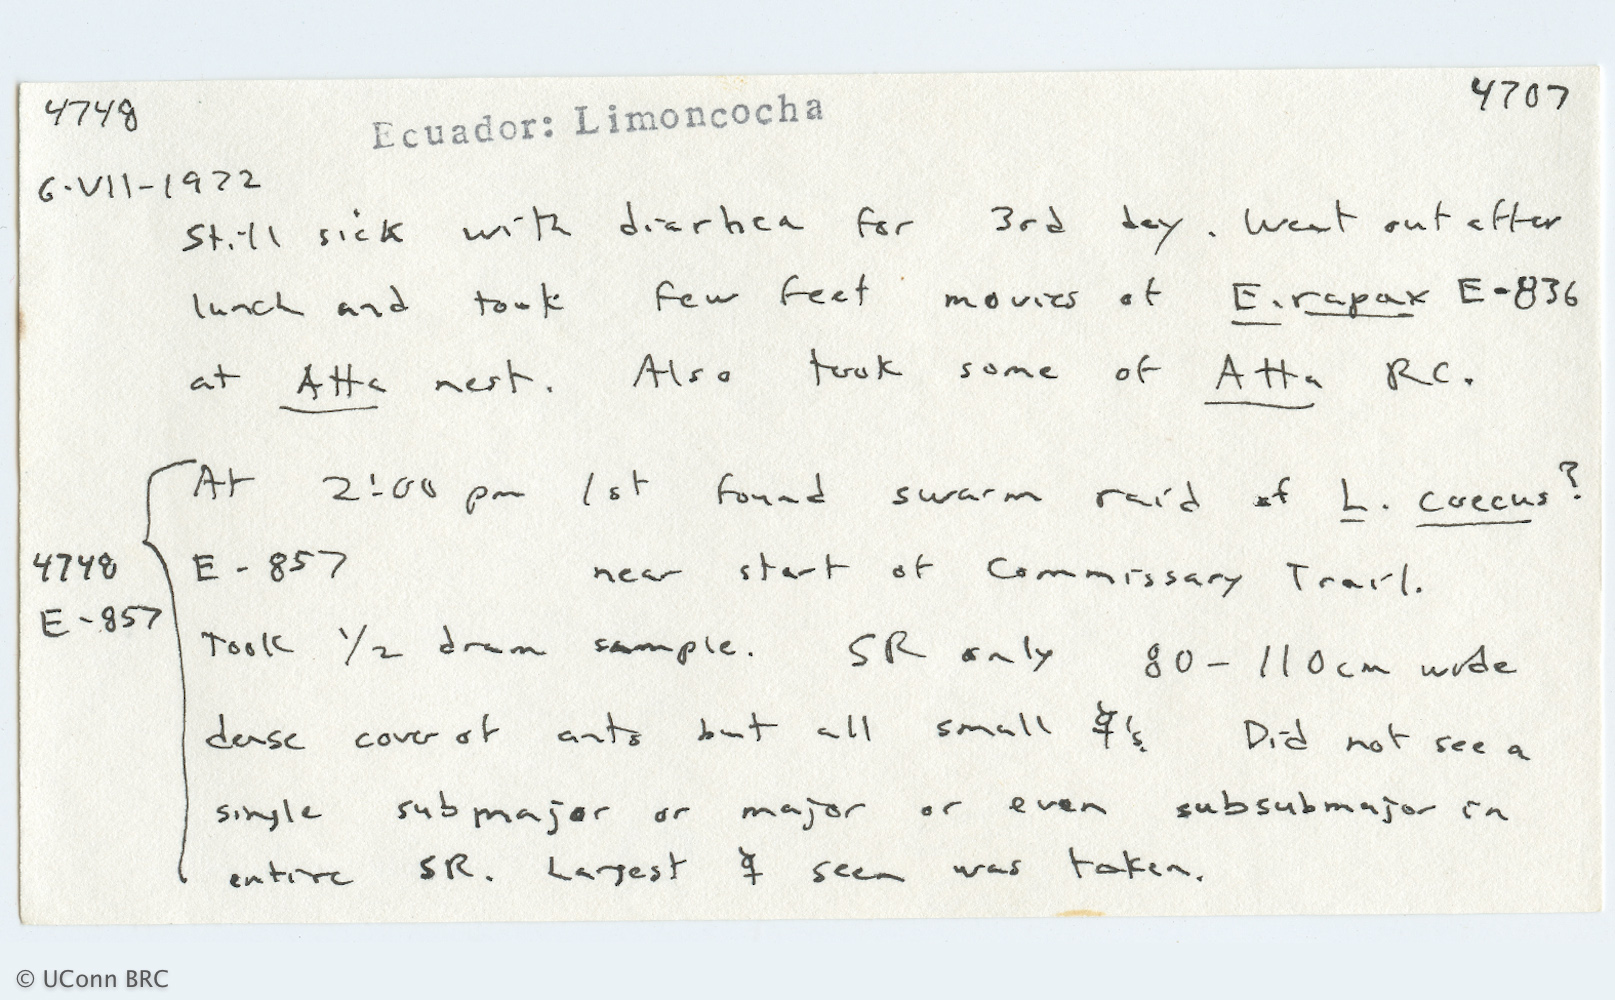 4748 Ecuador: Limoncocha 4707
6-VII-1972
Still sick with diarhea for 3rd day. Went out after
lunch and took few feet movies of E. rapax E-836
at Atta nest. Also took some of Atta RC.
At 2:00 pm 1st found swarm raid of L. coecus?
4748 E-857 near start of Commissary Trail.
E-857
Took 1/2 dram sample. SR only 80-110cm wide
dense cover of ants but all small ☿'s. Did not see a
single submajor or major or even subsubmajor in
entire SR. Largest ☿ seen was taken.
© UConn BRC